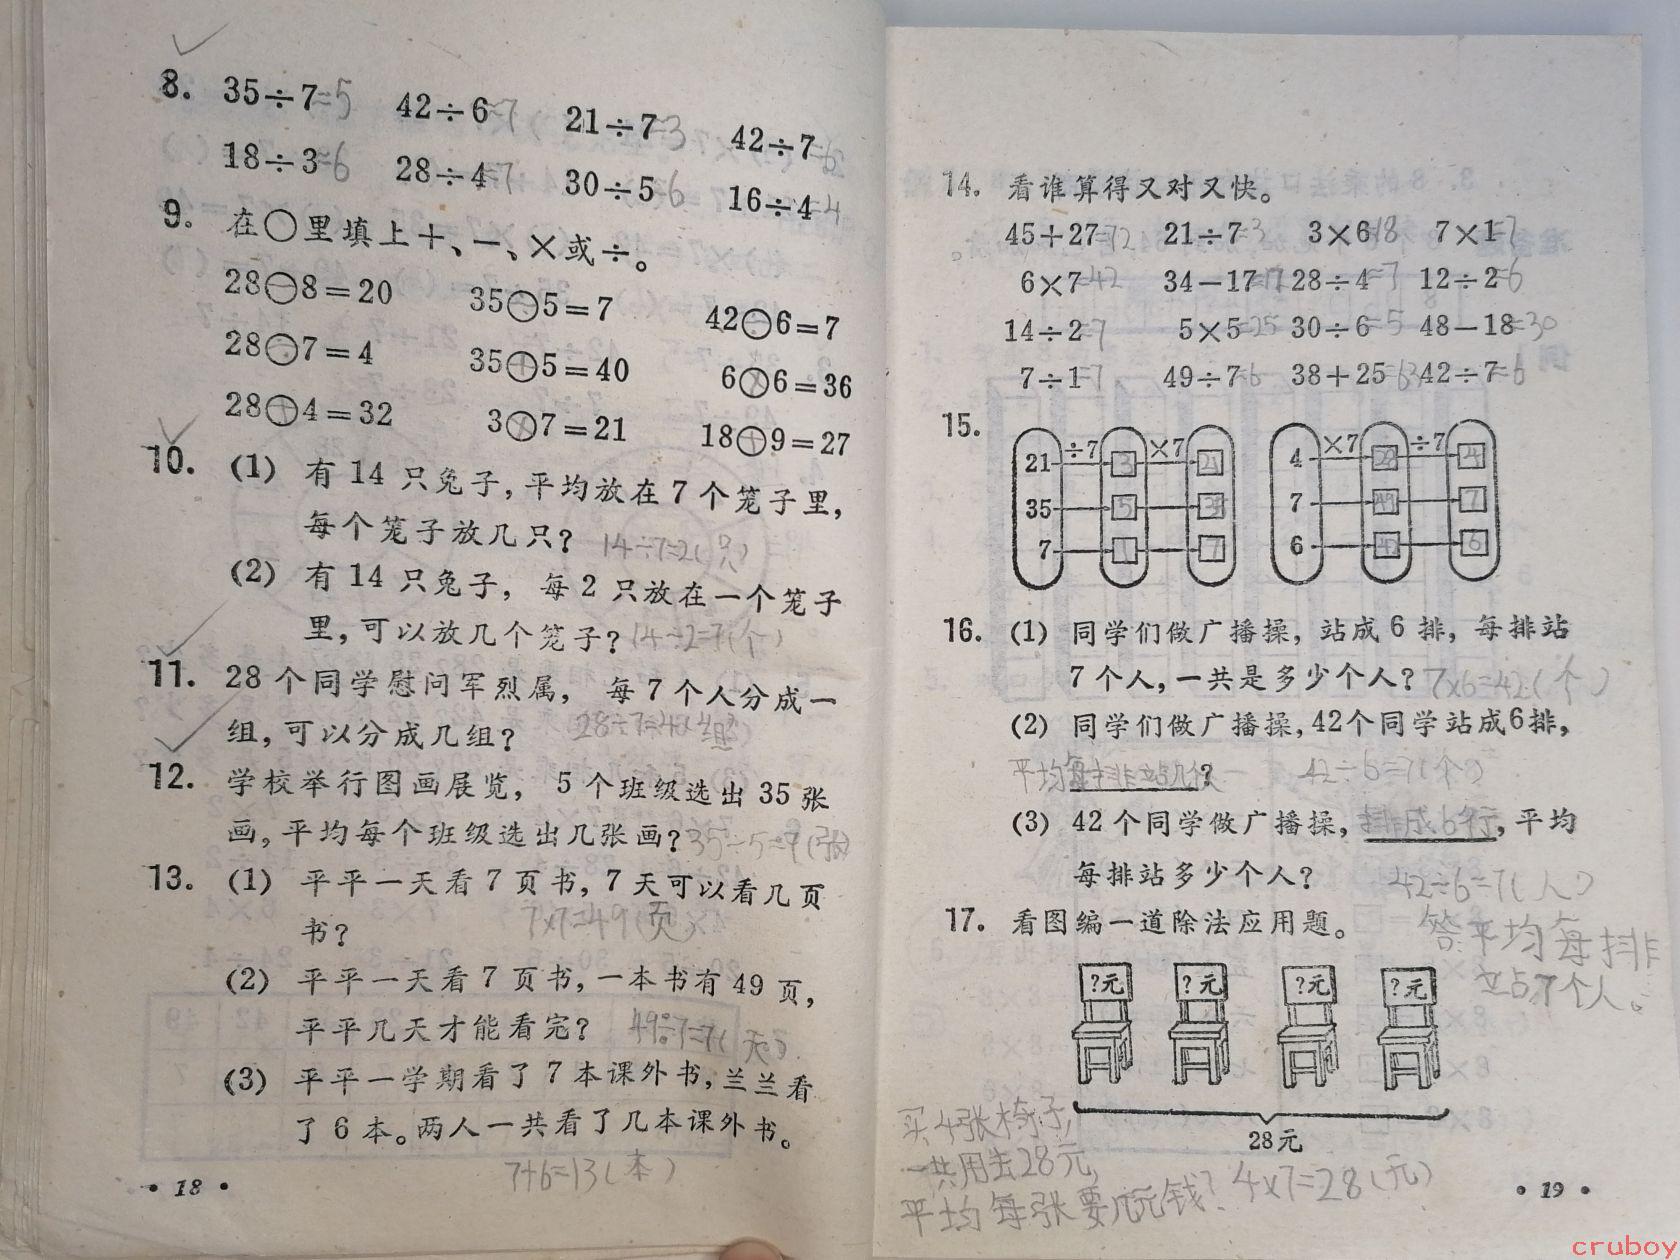 8. 35÷7=5 42÷6=7 21÷7=3 42÷7=6
18÷3=6 28÷4=7 30÷5=6 16÷4=4
9. 在○里填上+、一、×或÷。
28○8=20 35○5=7 42○6=7
28○7=4 35+5=40 6×6=36
28+4=32 3×7=21 18+9=27
10. (1) 有14只兔子,平均放在7个笼子里,
每个笼子放几只? 14÷7=2(只)
(2) 有14只兔子, 每2只放在一个笼子
里,可以放几个笼子? 14÷2=7(个)
11. 28个同学慰问军烈属, 每7个人分成一
组,可以分成几组? 28÷7=4(组)
12. 学校举行图画展览, 5个班级选出35张
画,平均每个班级选出几张画? 35÷5=7(张)
13. (1) 平平一天看7页书,7天可以看几页
书? 7×7=49(页)
(2) 平平一天看7页书,一本书有49页,
平平几天才能看完? 49÷7=7(天)
(3) 平平一学期看了7本课外书,兰兰看
了6本。两人一共看了几本课外书。
7+6=13(本)
• 18 •
14. 看谁算得又对又快。
45+27=72 21÷7=3 3×6=18 7×1=7
6×7=42 34-17=17 28÷4=7 12÷2=6
14÷2=7 5×5=25 30÷6=5 48-18=30
7÷1=7 49÷7=6 38+25=63 42÷7=6
15. ÷7 ×7 ×7 ÷7
21 3 21 4 28
35 5 35 7 49 7
7 1 7 6 42 6
16. (1) 同学们做广播操,站成6排,每排站
7个人,一共是多少个人? 7×6=42(个)
(2) 同学们做广播操,42个同学站成6排,
平均每排站几个? 42÷6=7(个)
(3) 42个同学做广播操,排成6行,平均
每排站多少个人? 42÷6=7(人)
答:平均每排
站7个人。
17. 看图编一道除法应用题。
?元 ?元 ?元 ?元
28元
买4张椅子,
一共用去28元,
平均每张要几元钱? 4×7=28(元)
• 19 •
cruboy